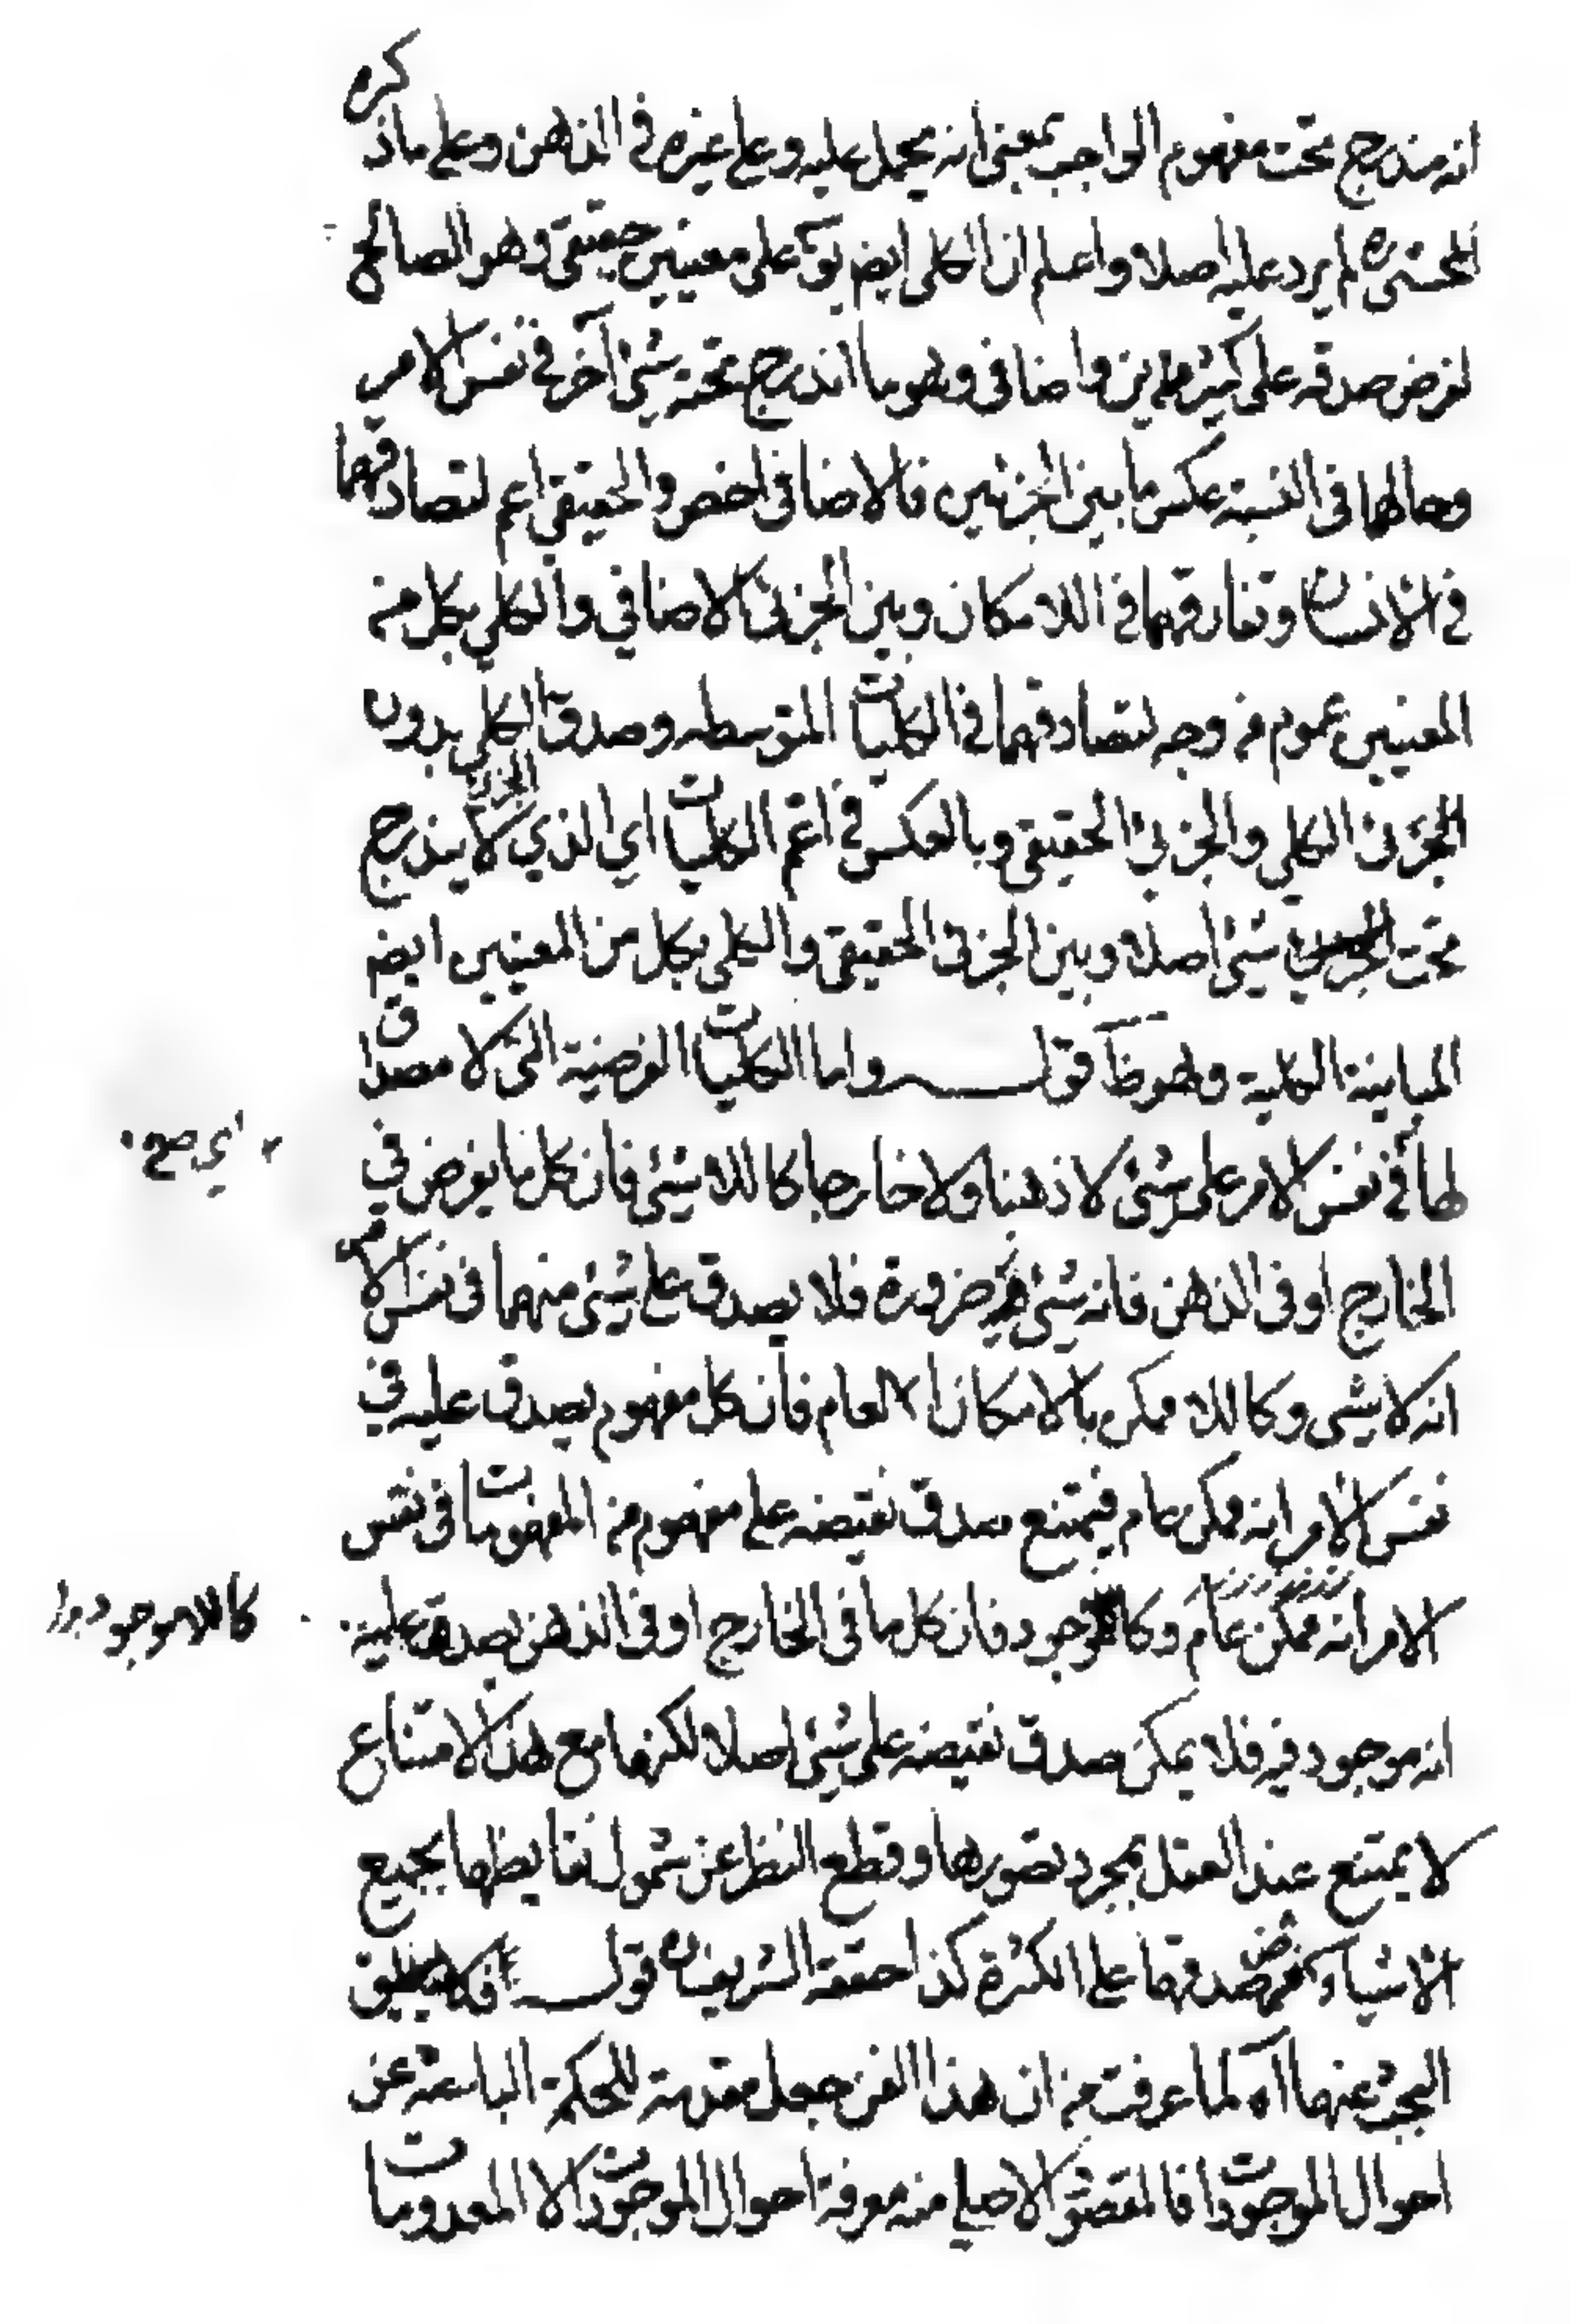 انه مندرج تحت مفهوم الواجب بمعنى انه يحمل عليه وعلى غيره في الذهن وعلى ما ذكره
المحشىره لم يرد عليه اصلا واعلم ان الكلى ايض يق على معنيين حقيقى وهو الصالح
لفرض صدقه على كثيرين واضافى وهو ما اندرج تحته شئ آخر فى نفس الامر
وحالهما فى النسبة عكس ما بين الجزئين فالاضافى اخص والحقيقى اعم لتصادقهما
فى الانسان وتفارقهما فى اللامكان وبين الجزئى الاضافي والكلي بكل من
المعنيين عموم من وجه لتصادقهما فى الكليات المتوسطه وصدق الكلي بدون
الجزئى الكلي والجزئي الحقيقى وبالعكس فى اعم الكليات اي الذي لا يندرج
تحت شئ اصلا وبين الجزئى الحقيقى والكلى بكل من المعنيين ايض
المباينة الكلية وهو ظ قوله واما الكليات الفرضية التى لا مصداق
لها فى نفس الامر على شئ لا ذهنا ولا خارجا كاللاشئ فان كل ما يفرض في
الخارج او فى الذهن فانه شئ ضرورة فلا يصدق على شئ منهما فى نفس الامر
انه لا شى وكاللا ممكن بالامكان العام فان كل مفهوم يصدق عليه في
نفس الامر انه ممكن عام فيمتنع صدق نقيضه على مفهوم من المفهومات فى نفس
الامر انه ممكن عام وكاللاموجود فان كل ما فى الخارج او فى الذهن يصدق عليه
كاللاموجود
انه موجود فيه فلا يمكن صدق نقيضه على شئ اصلا لكنها مع هذا الامتناع
لا يمتنع عند العقل بمجرد تصورها وقطع النظر عن شمول نقايظها بجميع
الاشياء فرض صدقها على الكثرة كذا حققه الشريف ره قوله فلا يليق
البحث عنها اه لما عرفت من ان هذا الفن جعل مقدمة للحكمة الباحثة عن
احوال الموجودات فالمقصود الاصلي منه معرفة احوال الموجودات لا المعدومات